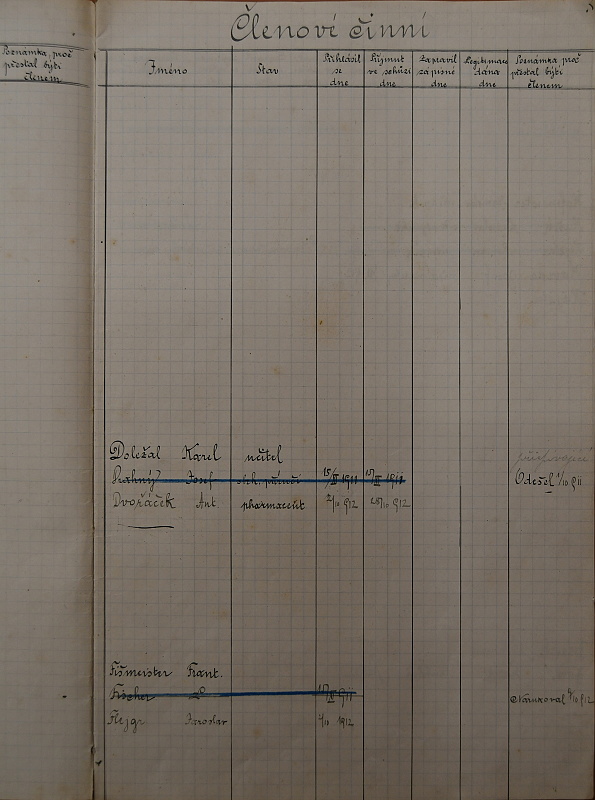 Členové činní
Poznámka, proč přestal býti členem
Jméno
Stav
Přihlásil se dne
Přijmut ve schůzi dne
Zapravil zápisné dne
Legitimace dána dne
Poznámka proč přestal býti členem
Doležal Karel učitel
Josef 1911 1911 Odešel 1/10 911
Dvořáček Ant. pharmaceut 2/10 912 28/10 912
Fišmeister Frant.
Fischer Narukoval 9/10 912
Flejgr Jaroslav 4/10 1912